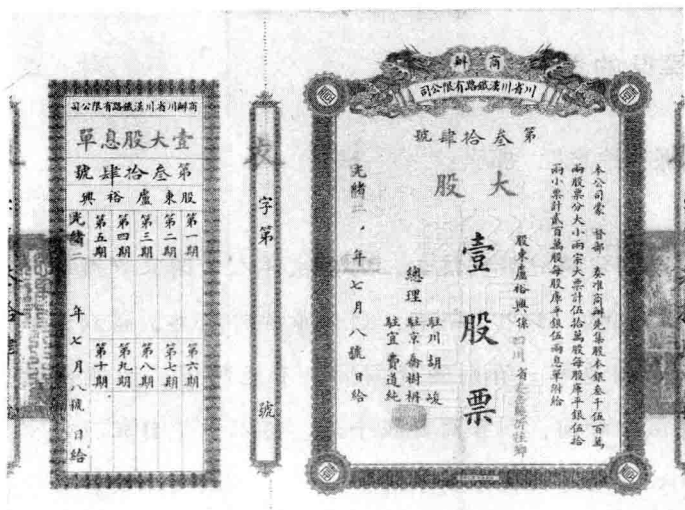 商辦
川省川漢鐵路有限公司
第叁拾肆號
大股
本公司蒙 督部 奏准商辦先集股本銀叁千伍百萬
兩股票分大小兩宗大票計伍拾萬股每股庫平銀伍拾
兩小票計貳百萬股每股庫平銀伍兩息單附給
股東盧裕興係四川省
壹股票
駐川胡峻
總理 駐京喬樹枬
駐宜費道純
光緒 年七月八號日給
字第 號
商辦川省川漢鐵路有限公司
壹大股息單
第叁拾肆號
股東盧裕興
第一期 第六期
第二期 第七期
第三期 第八期
第四期 第九期
第五期 第十期
光緒 年七月八號日給